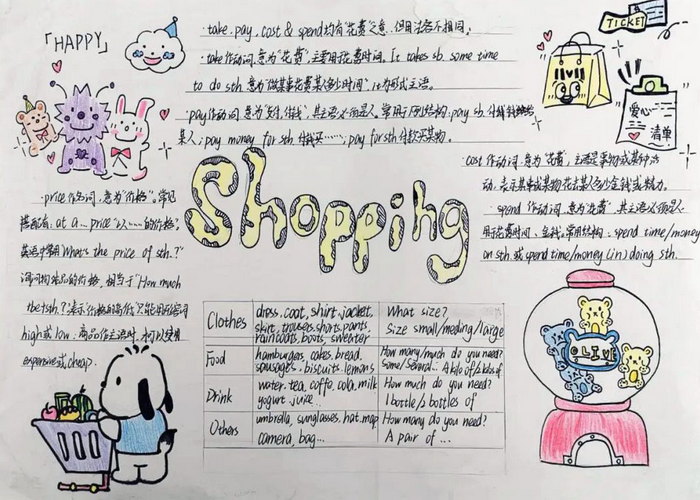 「HAPPY」
·take、pay、cost & spend均有"花费"之意,但用法各不相同。
·take作动词,意为"花费",主要用于花费时间。It takes sb. some time
to do sth.意为"做某事花费某人多少时间",it为形式主语。
·pay作动词,意为"支付、付钱",其主语必须是人。常用于下列结构:pay sb.付钱给
某人;pay money for sth.付钱买……;pay for sth.付款买某物。
TICKET
爱心
清单
Shopping
·price作名词,意为"价格"。常见
搭配有:at a…price"以……的价格"。
英语中常用What's the price of sth.?"
询问物品的价格,相当于"How much
be sth.?"表示价格高低时,只能用形容词
high或low。商品作主语时,才可以使用
expensive或cheap。
cost作动词,意为"花费",主语是事物或某种活
动。表示某事或某物花去某人多少金钱或精力。
·spend作动词,意为"花费",其主语必须是人
用于花费时间、金钱。常用结构:spend time/money
on sth.或spend time/money (in) doing sth.
Clothes dress、coat、shirt、jacket、 What size?
skirt、trousers、shorts、pants、 Size small/meding/large
raincoats、boots、sweater
Food hamburgers、cakes、bread、 How many/much do you need?
sausages、biscuits、lemons Some/Several… A kilo of/kilos of
Drink water、tea、coffe、cola、milk How much do you need?
yogurt、juice… 1 bottle/2 bottles of
Others umbrella、sunglasses、hat、map How many do you need?
camera、bag… A pair of …
LIVE